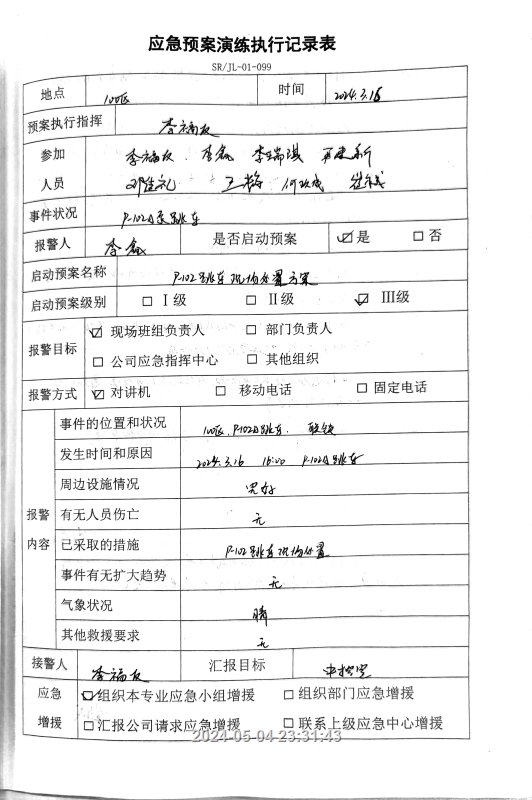 应急预案演练执行记录表
SR/JL-01-099
地点 100区 时间 2024.3.16
预案执行指挥 李福友
参加 李福友 李鑫 李瑞琪
人员
事件状况 P-102A泵跳车
报警人 李鑫 是否启动预案 ☑是 □否
启动预案名称 P-102跳车现场处置方案
启动预案级别 □Ⅰ级 □Ⅱ级 ☑Ⅲ级
报警目标 ☑现场班组负责人 □部门负责人
□公司应急指挥中心 □其他组织
报警方式 ☑对讲机 □移动电话 □固定电话
报警内容
事件的位置和状况 100区、P-102A跳车、
发生时间和原因 2024.3.16 16:00 P-102A跳车
周边设施情况 完好
有无人员伤亡 无
已采取的措施 P-102跳车现场处置
事件有无扩大趋势 无
气象状况 晴
其他救援要求 无
接警人 李福友 汇报目标 中控室
应急 ☑组织本专业应急小组增援 □组织部门应急增援
增援 □汇报公司请求应急增援 □联系上级应急中心增援
2024-05-04 23:31:43